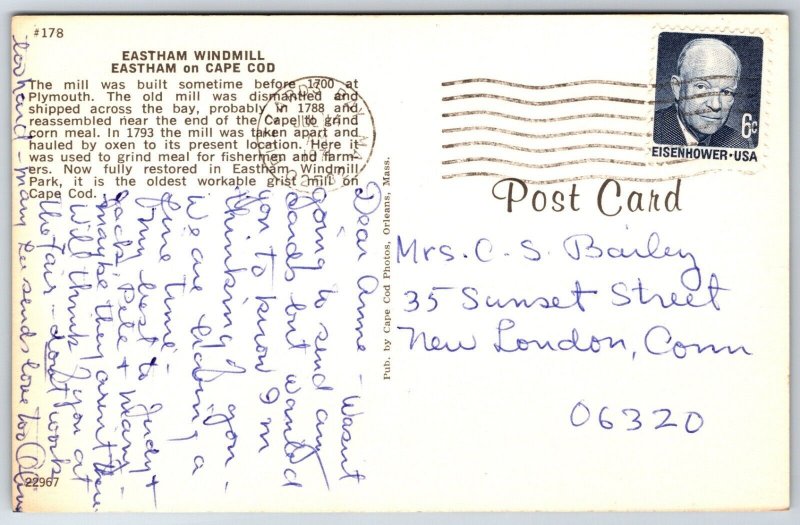 #178
EASTHAM WINDMILL
EASTHAM on CAPE COD
The mill was built sometime before 1700 at
Plymouth. The old mill was dismantled and
shipped across the bay, probably in 1788 and
reassembled near the end of the Cape to grind
corn meal. In 1793 the mill was taken apart and
hauled by oxen to its present location. Here it
was used to grind meal for fishermen and farm-
ers. Now fully restored in Eastham Windmill
Park, it is the oldest workable grist mill on
Cape Cod.
Dear Anne - Wasnt
going to send any
cards but wanted
you to know I'm
thinking of you.
We are having a
fine time -
my best to Judy +
Jack, Pete + Mary -
maybe they arent there
Will think of you at
the fair - dont work
too hard - Mary Lee sends love too
22967
Pub. by Cape Cod Photos, Orleans, Mass.
6c
EISENHOWER·USA
Post Card
Mrs. C. S. Bailey
35 Sunset Street
New London, Conn
06320